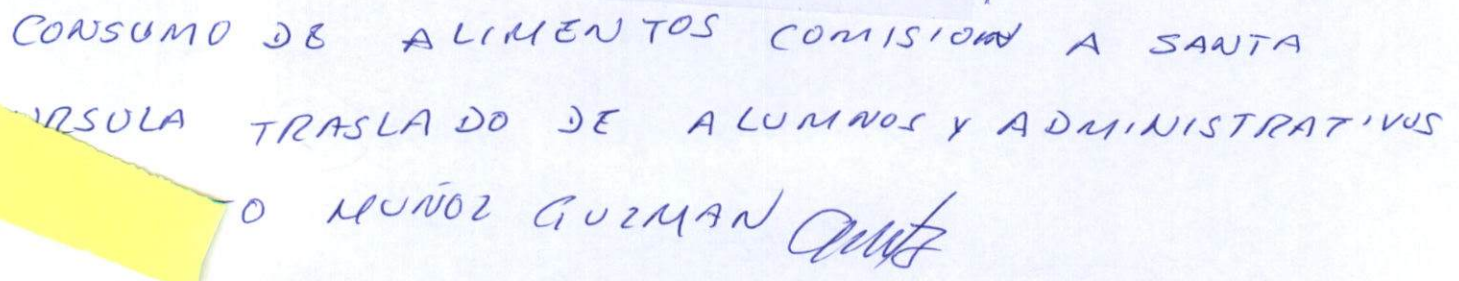 CONSUMO DE ALIMENTOS COMISION A SANTA
URSULA TRASLADO DE ALUMNOS Y ADMINISTRATIVOS
MUÑOZ GUZMAN